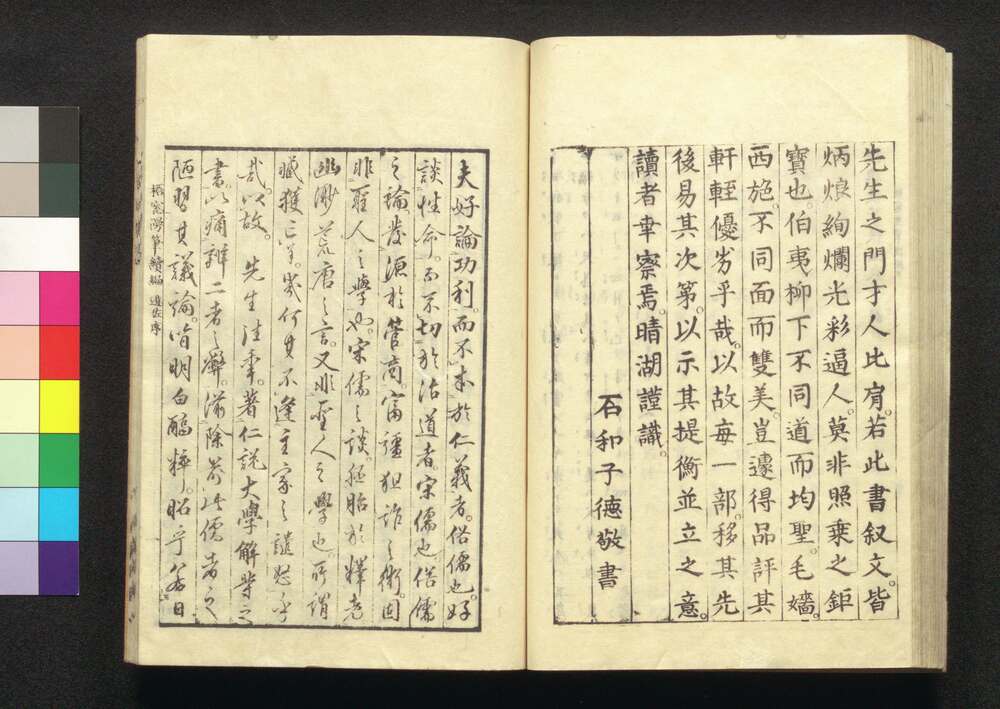 先生之門才人比肩。若此書叙文。皆
炳烺絢爛光彩逼人。莫非照乗之鉅
寶也。伯夷柳下不同道而均聖。毛嬙
西施。不同面而雙美。豈遽得品評其
軒輊優劣乎哉。以故每一部。移其先
後易其次第。以示其提衡並立之意。
讀者幸察焉。晴湖謹識。
石和子德敬書
夫好論功利。而不本於仁義者。俗儒也。好
談性命。而不切於治道者。宋儒也。俗儒
之論發源於管商。富彊狙詐之術。固
非聖人之學也。宋儒之談。胚胎於釋老
幽渺荒唐之言。又非聖人之學也。所謂
臧獲亡羊。幾何其不逢主家之譴怒乎
哉。以故。先生注季。著仁説大學解等之
書。以痛辨二者之弊。滌除
儒者之
陋習其議論。皆明白醇粹。昭乎若日
窻漫筆續編
序